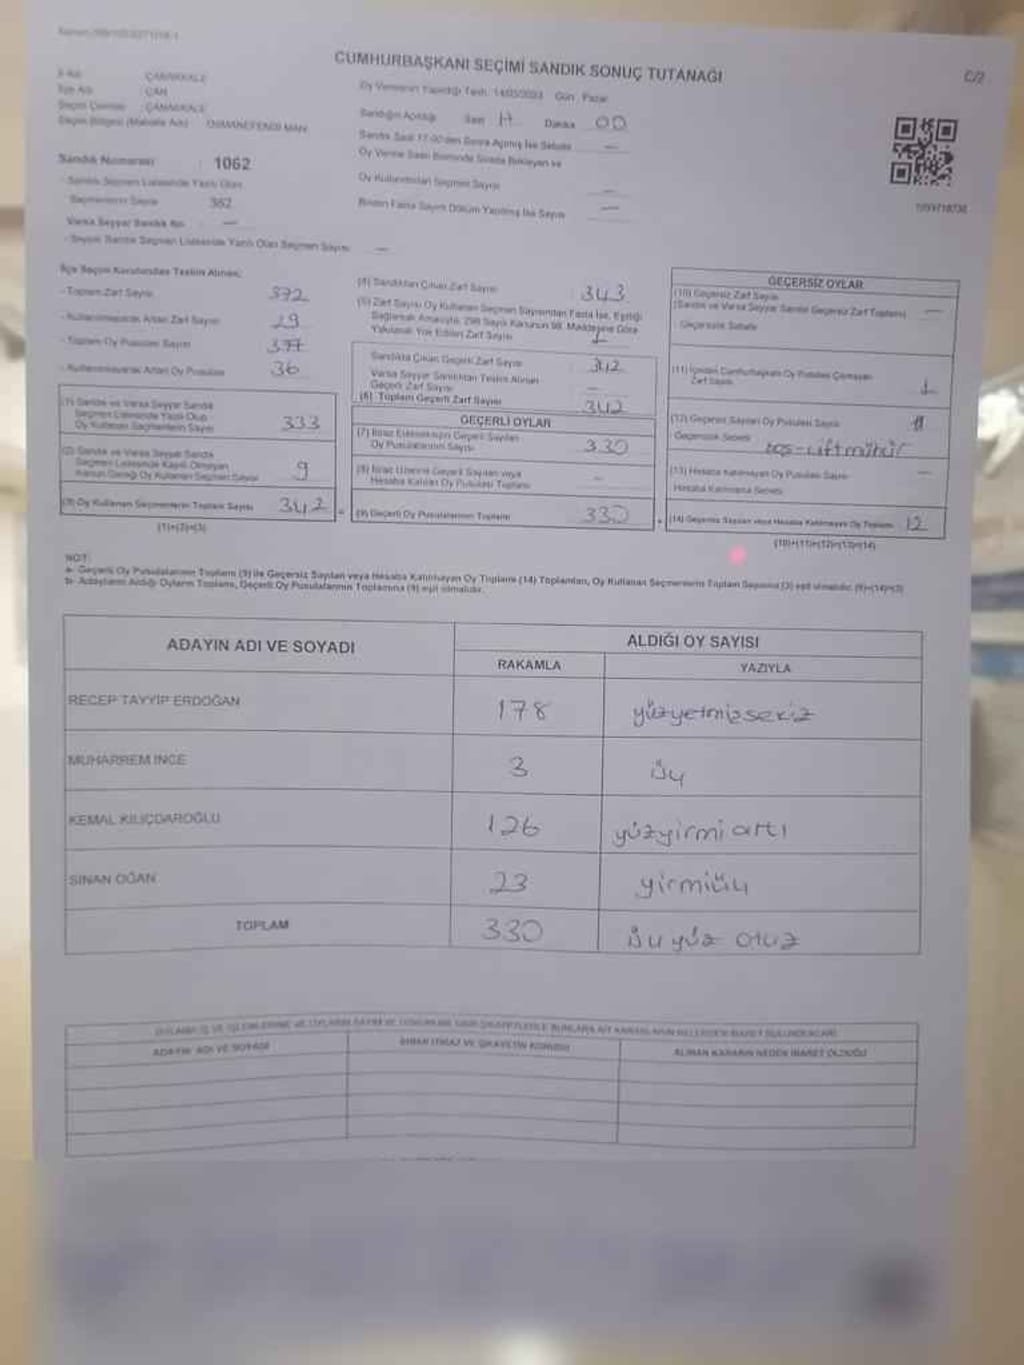 CUMHURBAŞKANI SEÇİMİ SANDIK SONUÇ TUTANAĞI
C/2
İl Adı : ÇANAKKALE
İlçe Adı : ÇAN
Seçim Çevresi : ÇANAKKALE
Seçim Bölgesi (Mahalle Adı) : OSMANEFENDİ MAH.
Oy Vermenin Yapıldığı Tarih: 14/05/2023 Gün: Pazar
Sandığın Açıldığı Saat 17 Dakika 00
Sandık Saat 17:00'den Sonra Açılmış İse Sebebi —
Oy Verme Saati Bitiminde Sırada Bekleyen ve
Oy Kullandırılan Seçmen Sayısı —
Birden Fazla Sayım Döküm Yapılmış İse Sayısı —
Sandık Numarası : 1062
- Sandık Seçmen Listesinde Yazılı Olan
Seçmenlerin Sayısı : 362
Varsa Seyyar Sandık No —
- Seyyar Sandık Seçmen Listesinde Yazılı Olan Seçmen Sayısı —
İlçe Seçim Kurulundan Teslim Alınan;
- Toplam Zarf Sayısı 372
- Kullanılmayarak Artan Zarf Sayısı 29
- Toplam Oy Pusulası Sayısı
- Kullanılmayarak Artan Oy Pusulası 36
(1) Sandık ve Varsa Seyyar Sandık
Seçmen Listesinde Yazılı Olup
Oy Kullanan Seçmenlerin Sayısı 333
(2) Sandık ve Varsa Seyyar Sandık
Seçmen Listesinde Kayıtlı Olmayan
Kanun Gereği Oy Kullanan Seçmen Sayısı 9
(3) Oy Kullanan Seçmenlerin Toplam Sayısı 342
(1)+(2)=(3)
(4) Sandıktan Çıkan Zarf Sayısı 343
(5) Zarf Sayısı Oy Kullanan Seçmen Sayısından Fazla İse, Eşitliği
Sağlamak Amacıyla; 298 Sayılı Kanunun 98. Maddesine Göre
Yakılarak Yok Edilen Zarf Sayısı 1
Sandıkta Çıkan Geçerli Zarf Sayısı 342
Varsa Seyyar Sandıktan Teslim Alınan
Geçerli Zarf Sayısı —
(6) Toplam Geçerli Zarf Sayısı 342
GEÇERLİ OYLAR
(7) İtiraz Edilmeksizin Geçerli Sayılan
Oy Pusulalarının Sayısı 330
(8) İtiraz Üzerine Geçerli Sayılan veya
Hesaba Katılan Oy Pusulası Toplamı —
(9) Geçerli Oy Pusulalarının Toplamı 330
GEÇERSİZ OYLAR
(10) Geçersiz Zarf Sayısı
(Sandık ve Varsa Seyyar Sandık Geçersiz Zarf Toplamı) —
Geçersizlik Sebebi
(11) İçinden Cumhurbaşkanı Oy Pusulası Çıkmayan
Zarf Sayısı 1
(12) Geçersiz Sayılan Oy Pusulası Sayısı 11
Geçersizlik Sebebi boş-çift mühür
(13) Hesaba Katılmayan Oy Pusulası Sayısı —
Hesaba Katılmama Sebebi
(14) Geçersiz Sayılan veya Hesaba Katılmayan Oy Toplamı 12
(10)+(11)+(12)+(13)=(14)
NOT:
a- Geçerli Oy Pusulalarının Toplamı (9) ile Geçersiz Sayılan veya Hesaba Katılmayan Oy Toplamı (14) Toplamları, Oy Kullanan Seçmenlerin Toplam Sayısına (3) eşit olmalıdır. (9)+(14)=(3)
b- Adayların Aldığı Oyların Toplamı, Geçerli Oy Pusulalarının Toplamına (9) eşit olmalıdır.
ADAYIN ADI VE SOYADI ALDIĞI OY SAYISI
RAKAMLA YAZIYLA
RECEP TAYYİP ERDOĞAN 178 yüzyetmişsekiz
MUHARREM İNCE 3 üç
KEMAL KILIÇDAROĞLU 126 yüzyirmi artı
SİNAN OĞAN 23 yirmiüç
TOPLAM 330 üç yüz otuz
ADAYIN ADI VE SOYADI
İHBAR İTİRAZ VE ŞİKAYETİN KONUSU
ALINAN KARARIN NEDEN İBARET OLDUĞU